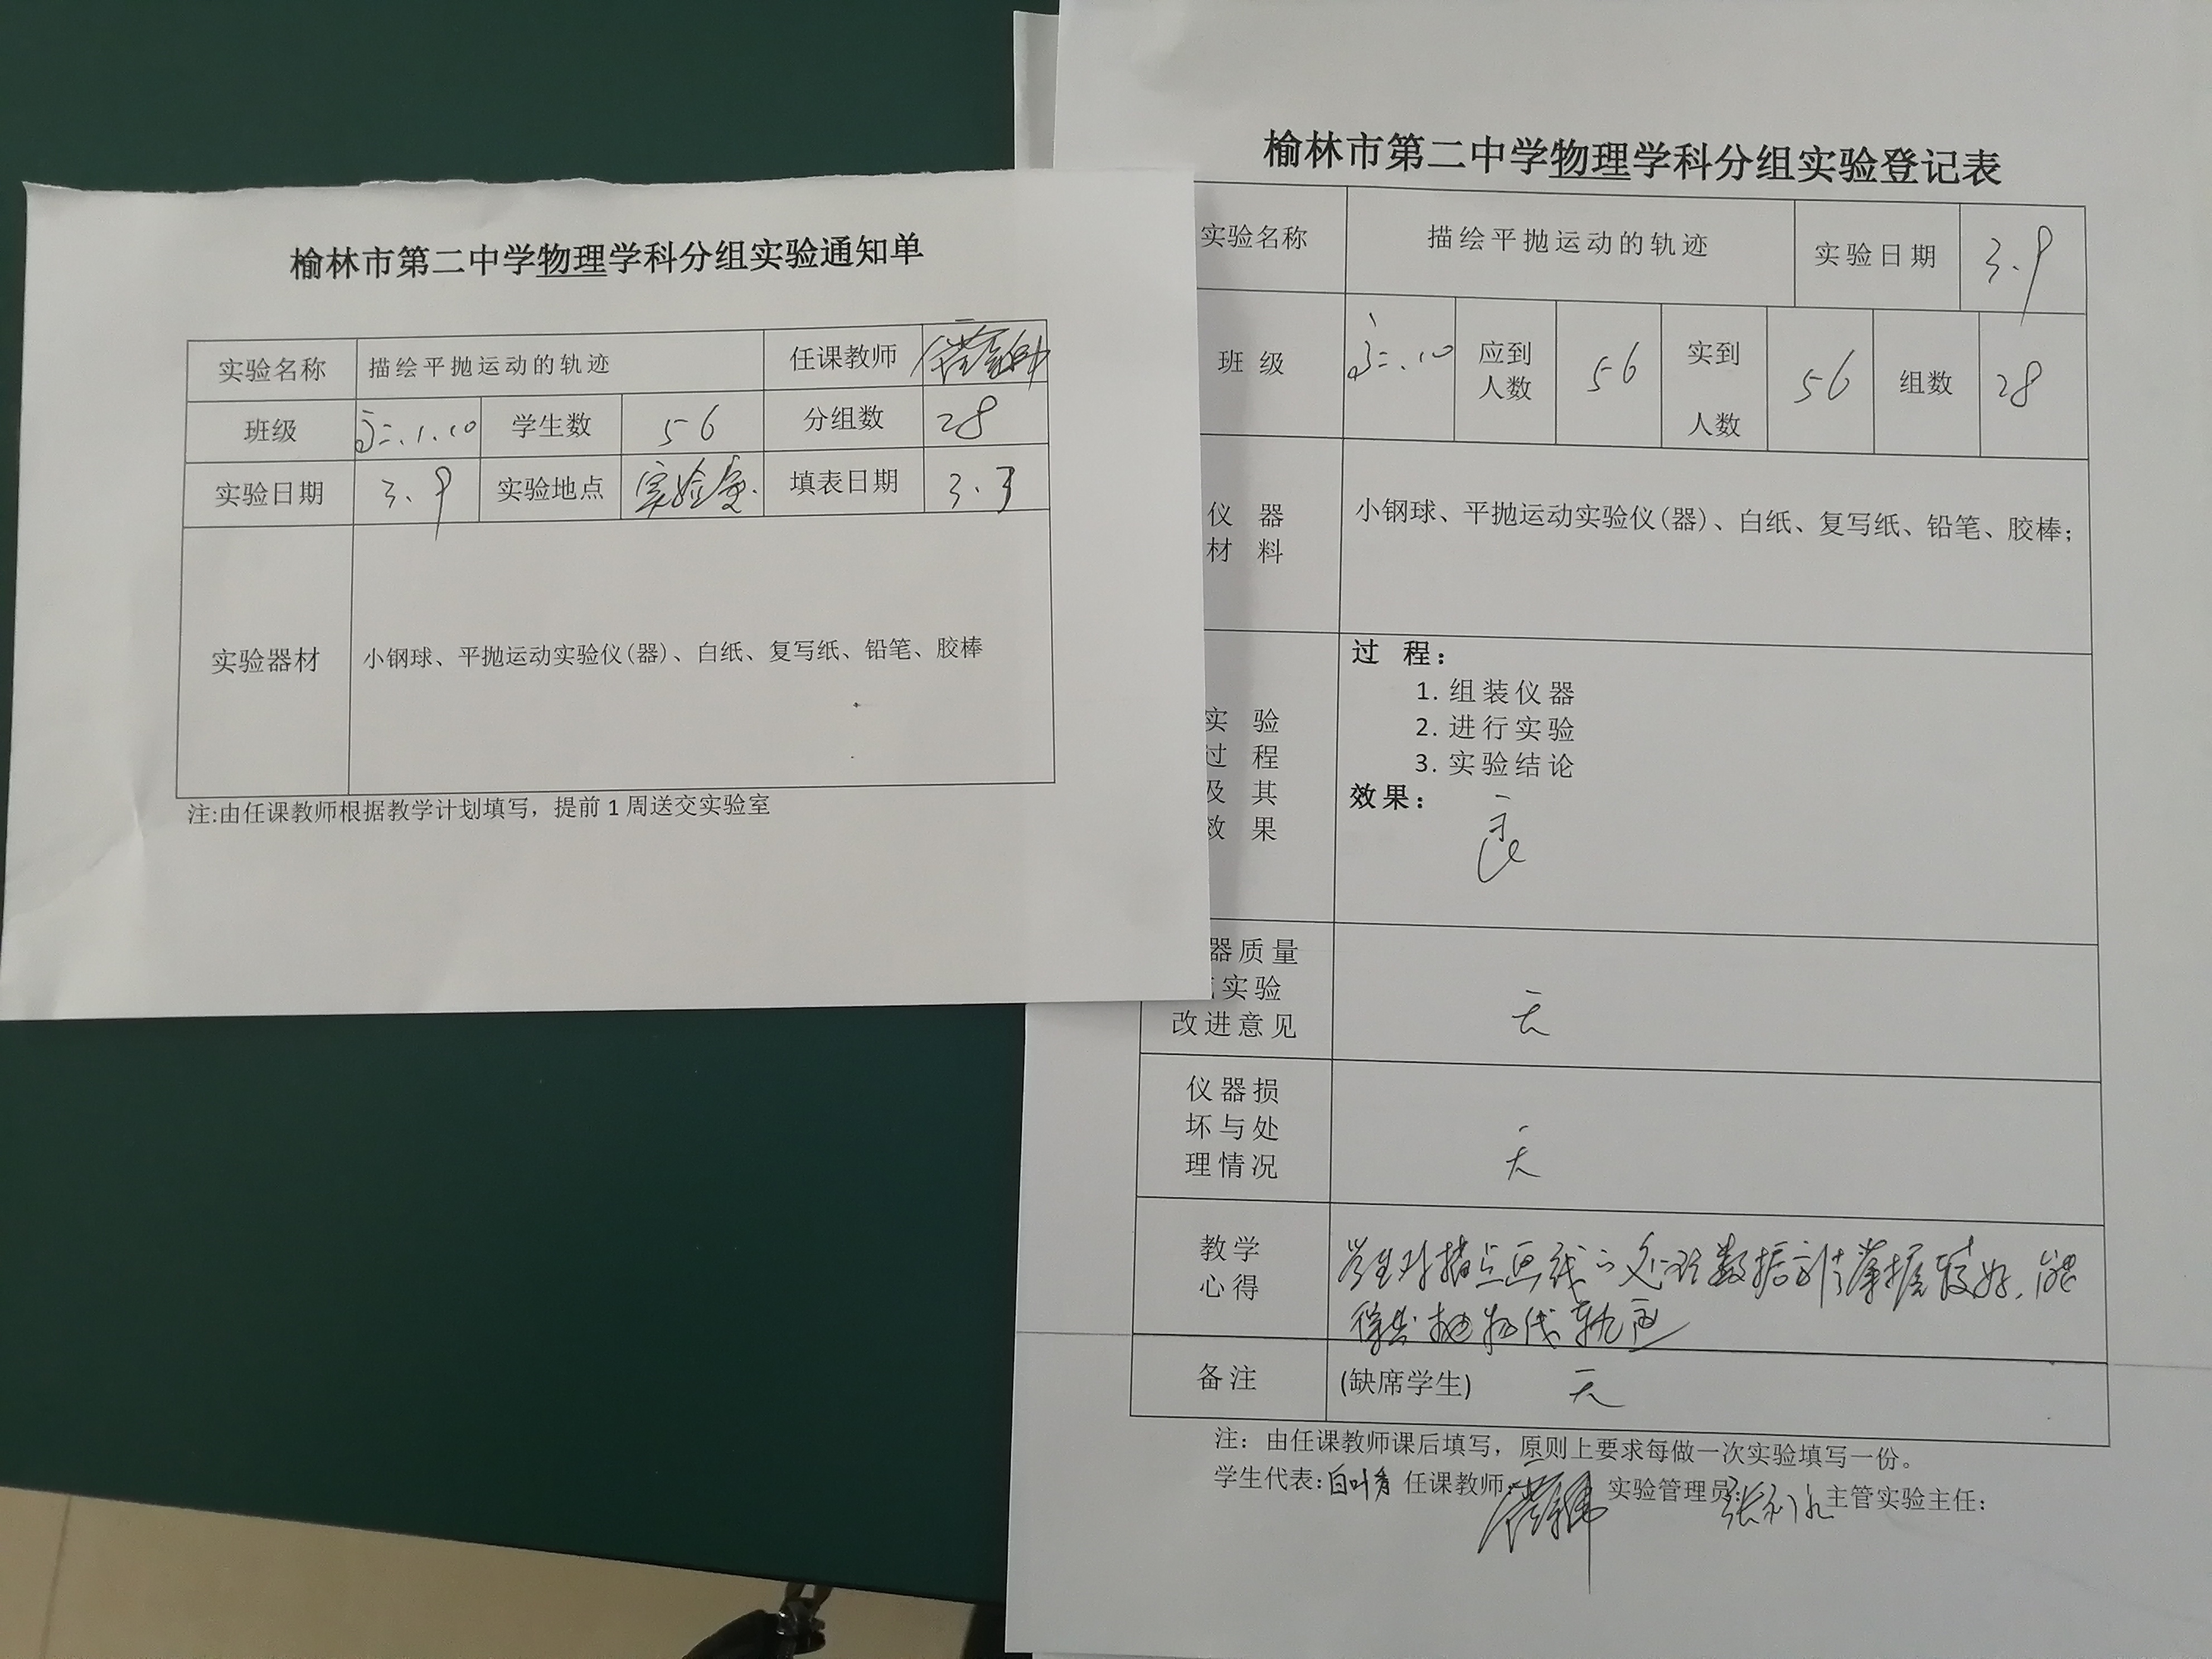 榆林市第二中学物理学科分组实验通知单
实验名称 描绘平抛运动的轨迹 任课教师
班级 高二.1.10 学生数 56 分组数 28
实验日期 3.9 实验地点 实验室. 填表日期 3.3
实验器材 小钢球、平抛运动实验仪(器)、白纸、复写纸、铅笔、胶棒
注:由任课教师根据教学计划填写，提前1周送交实验室
榆林市第二中学物理学科分组实验登记表
实验名称 描绘平抛运动的轨迹 实验日期 3.9
班 级 高二.10 应到人数 56 实到人数 56 组数 28
仪 器
材 料
小钢球、平抛运动实验仪(器)、白纸、复写纸、铅笔、胶棒；
实 验
过 程
及 其
效 果
过 程：
1. 组装仪器
2. 进行实验
3. 实验结论
效果：
良
器质量
实验
改进意见
无
仪器损
坏与处
理情况
无
教学
心得
学生对描点画线的处理数据方法掌握较好，能
得出抛物线轨迹
备注 (缺席学生) 无
注：由任课教师课后填写，原则上要求每做一次实验填写一份。
学生代表:白叶青 任课教师: 实验管理员: 主管实验主任：